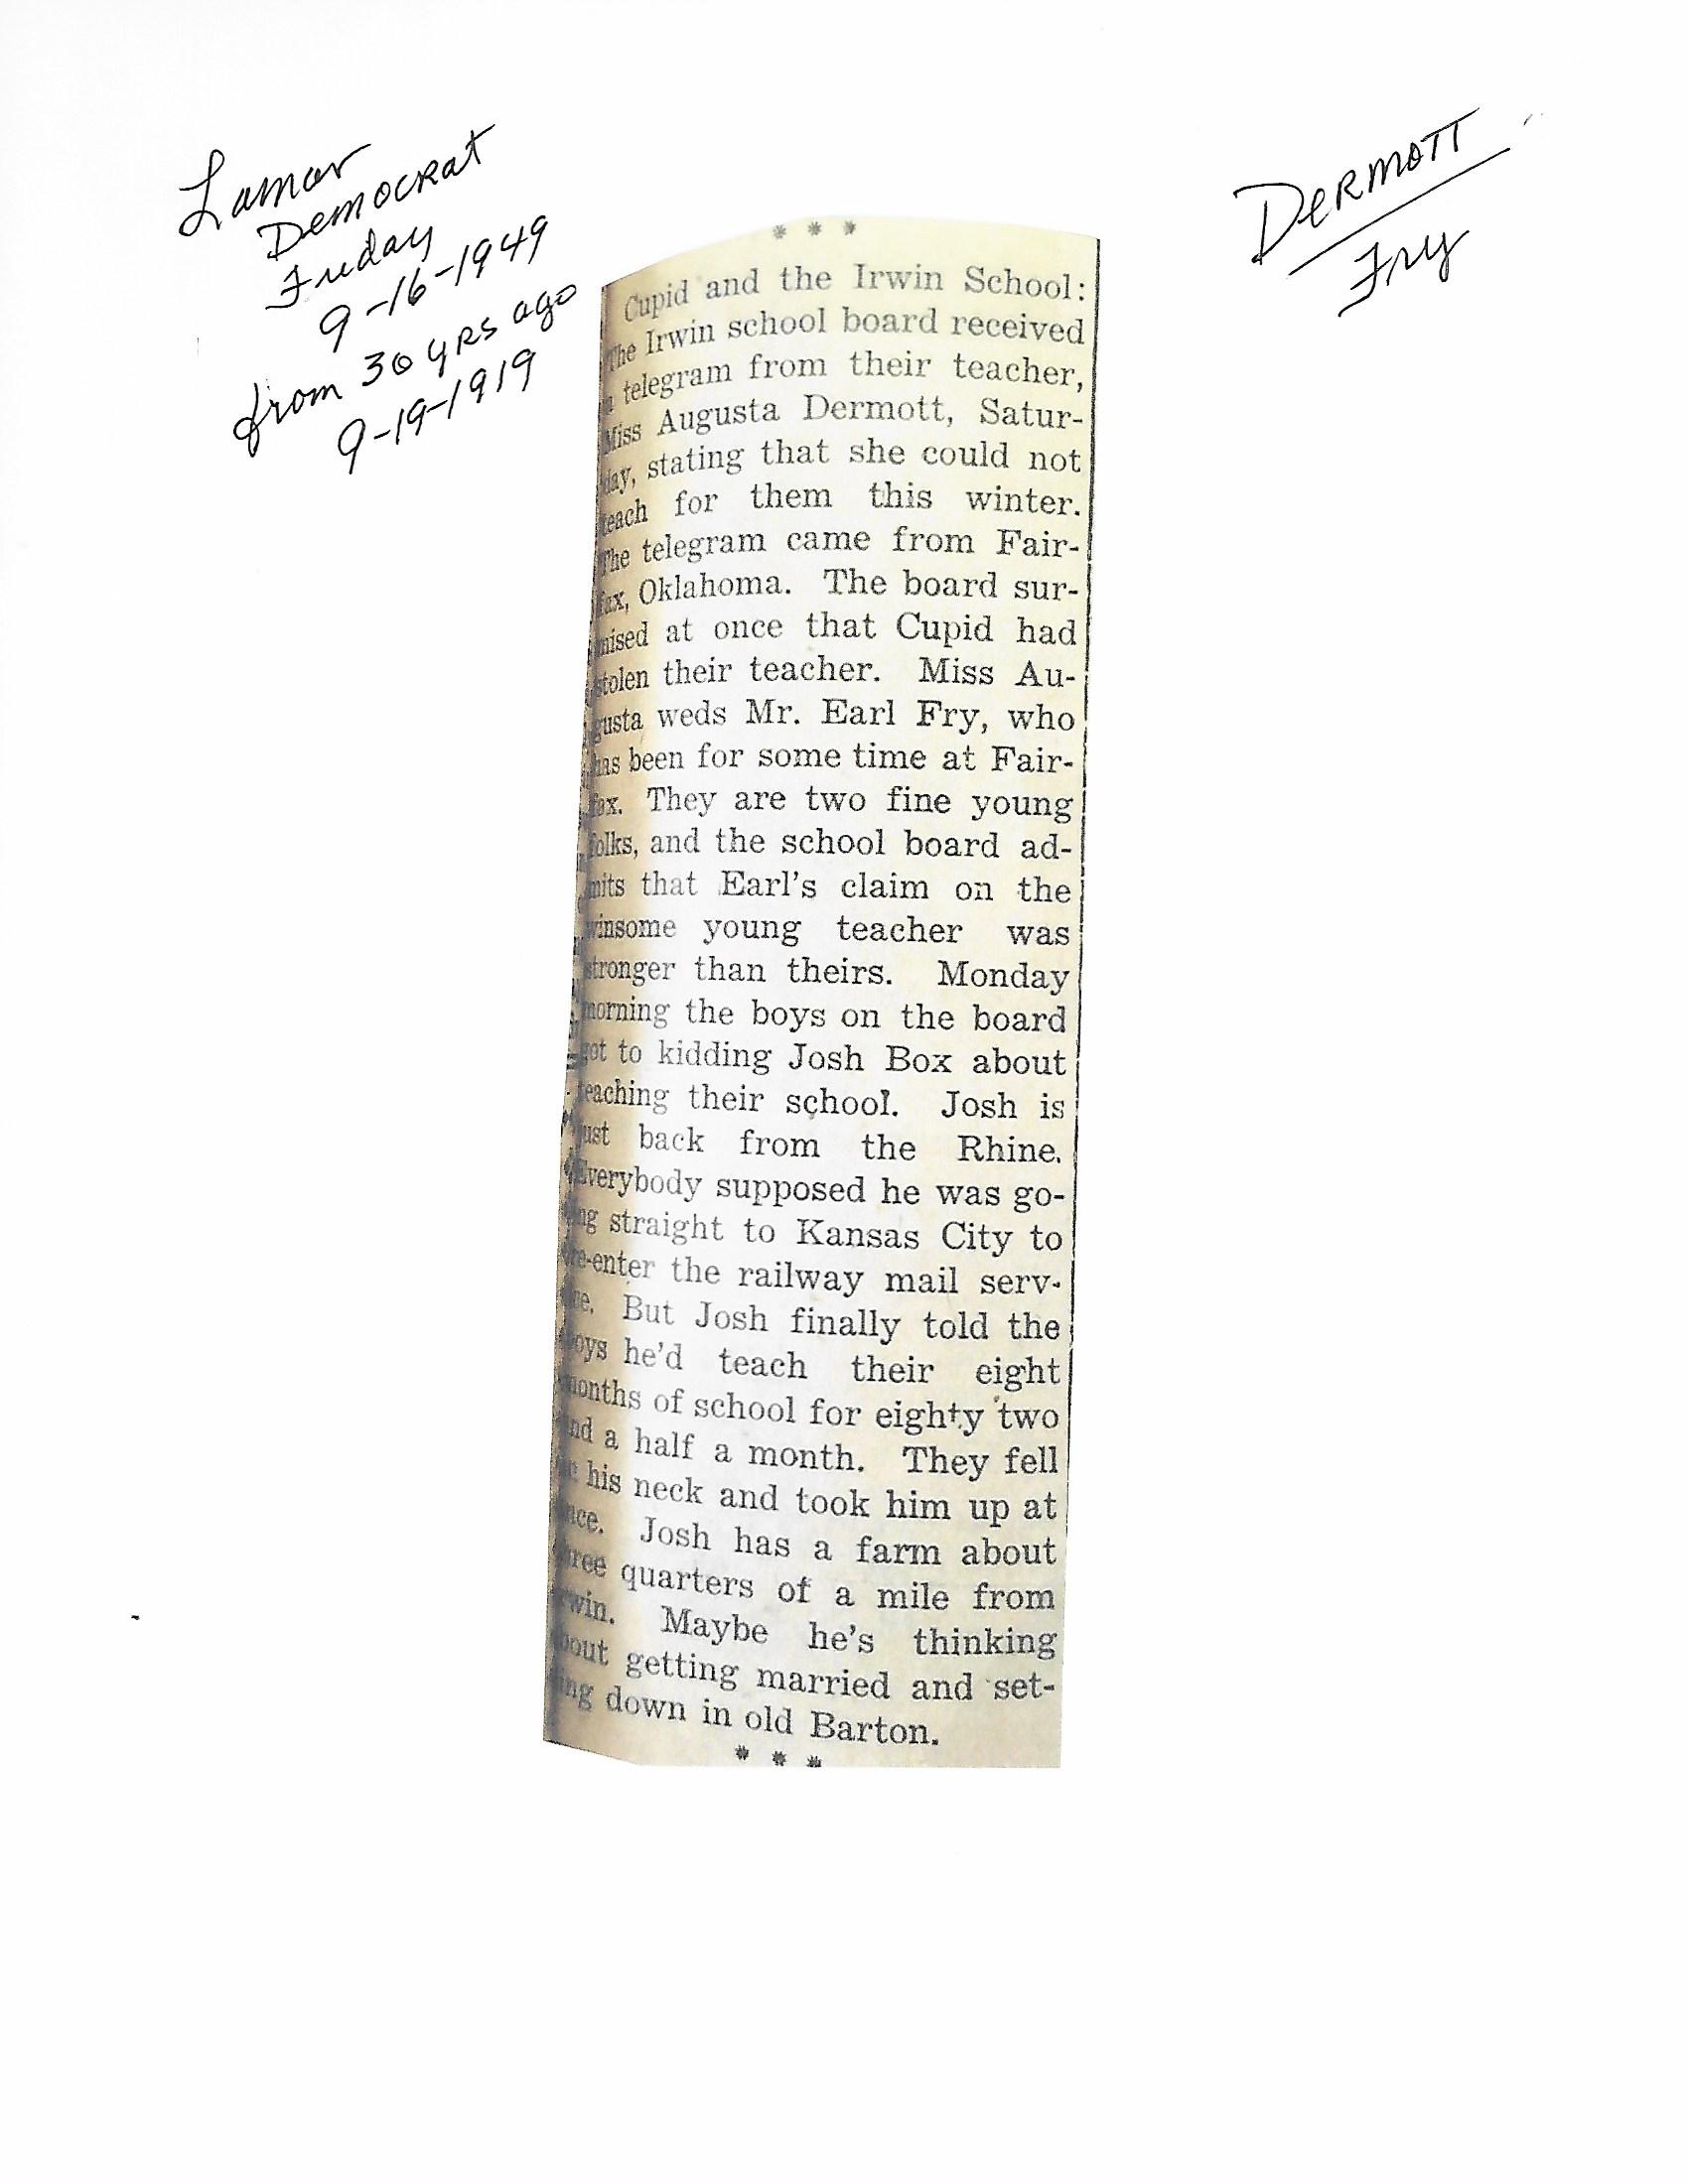 Lamar
Democrat
Friday
9-16-1949
from 30 yrs ago
9-19-1919
Dermott
Fry
* * *
Cupid and the Irwin School:
The Irwin school board received
a telegram from their teacher,
Miss Augusta Dermott, Satur-
day, stating that she could not
teach for them this winter.
The telegram came from Fair-
fax, Oklahoma. The board sur-
mised at once that Cupid had
stolen their teacher. Miss Au-
gusta weds Mr. Earl Fry, who
has been for some time at Fair-
fax. They are two fine young
folks, and the school board ad-
mits that Earl's claim on the
winsome young teacher was
stronger than theirs. Monday
morning the boys on the board
got to kidding Josh Box about
teaching their school. Josh is
just back from the Rhine.
Everybody supposed he was go-
ing straight to Kansas City to
re-enter the railway mail serv-
ice. But Josh finally told the
boys he'd teach their eight
months of school for eighty two
and a half a month. They fell
on his neck and took him up at
once. Josh has a farm about
three quarters of a mile from
Irwin. Maybe he's thinking
about getting married and set-
ing down in old Barton.
* * *